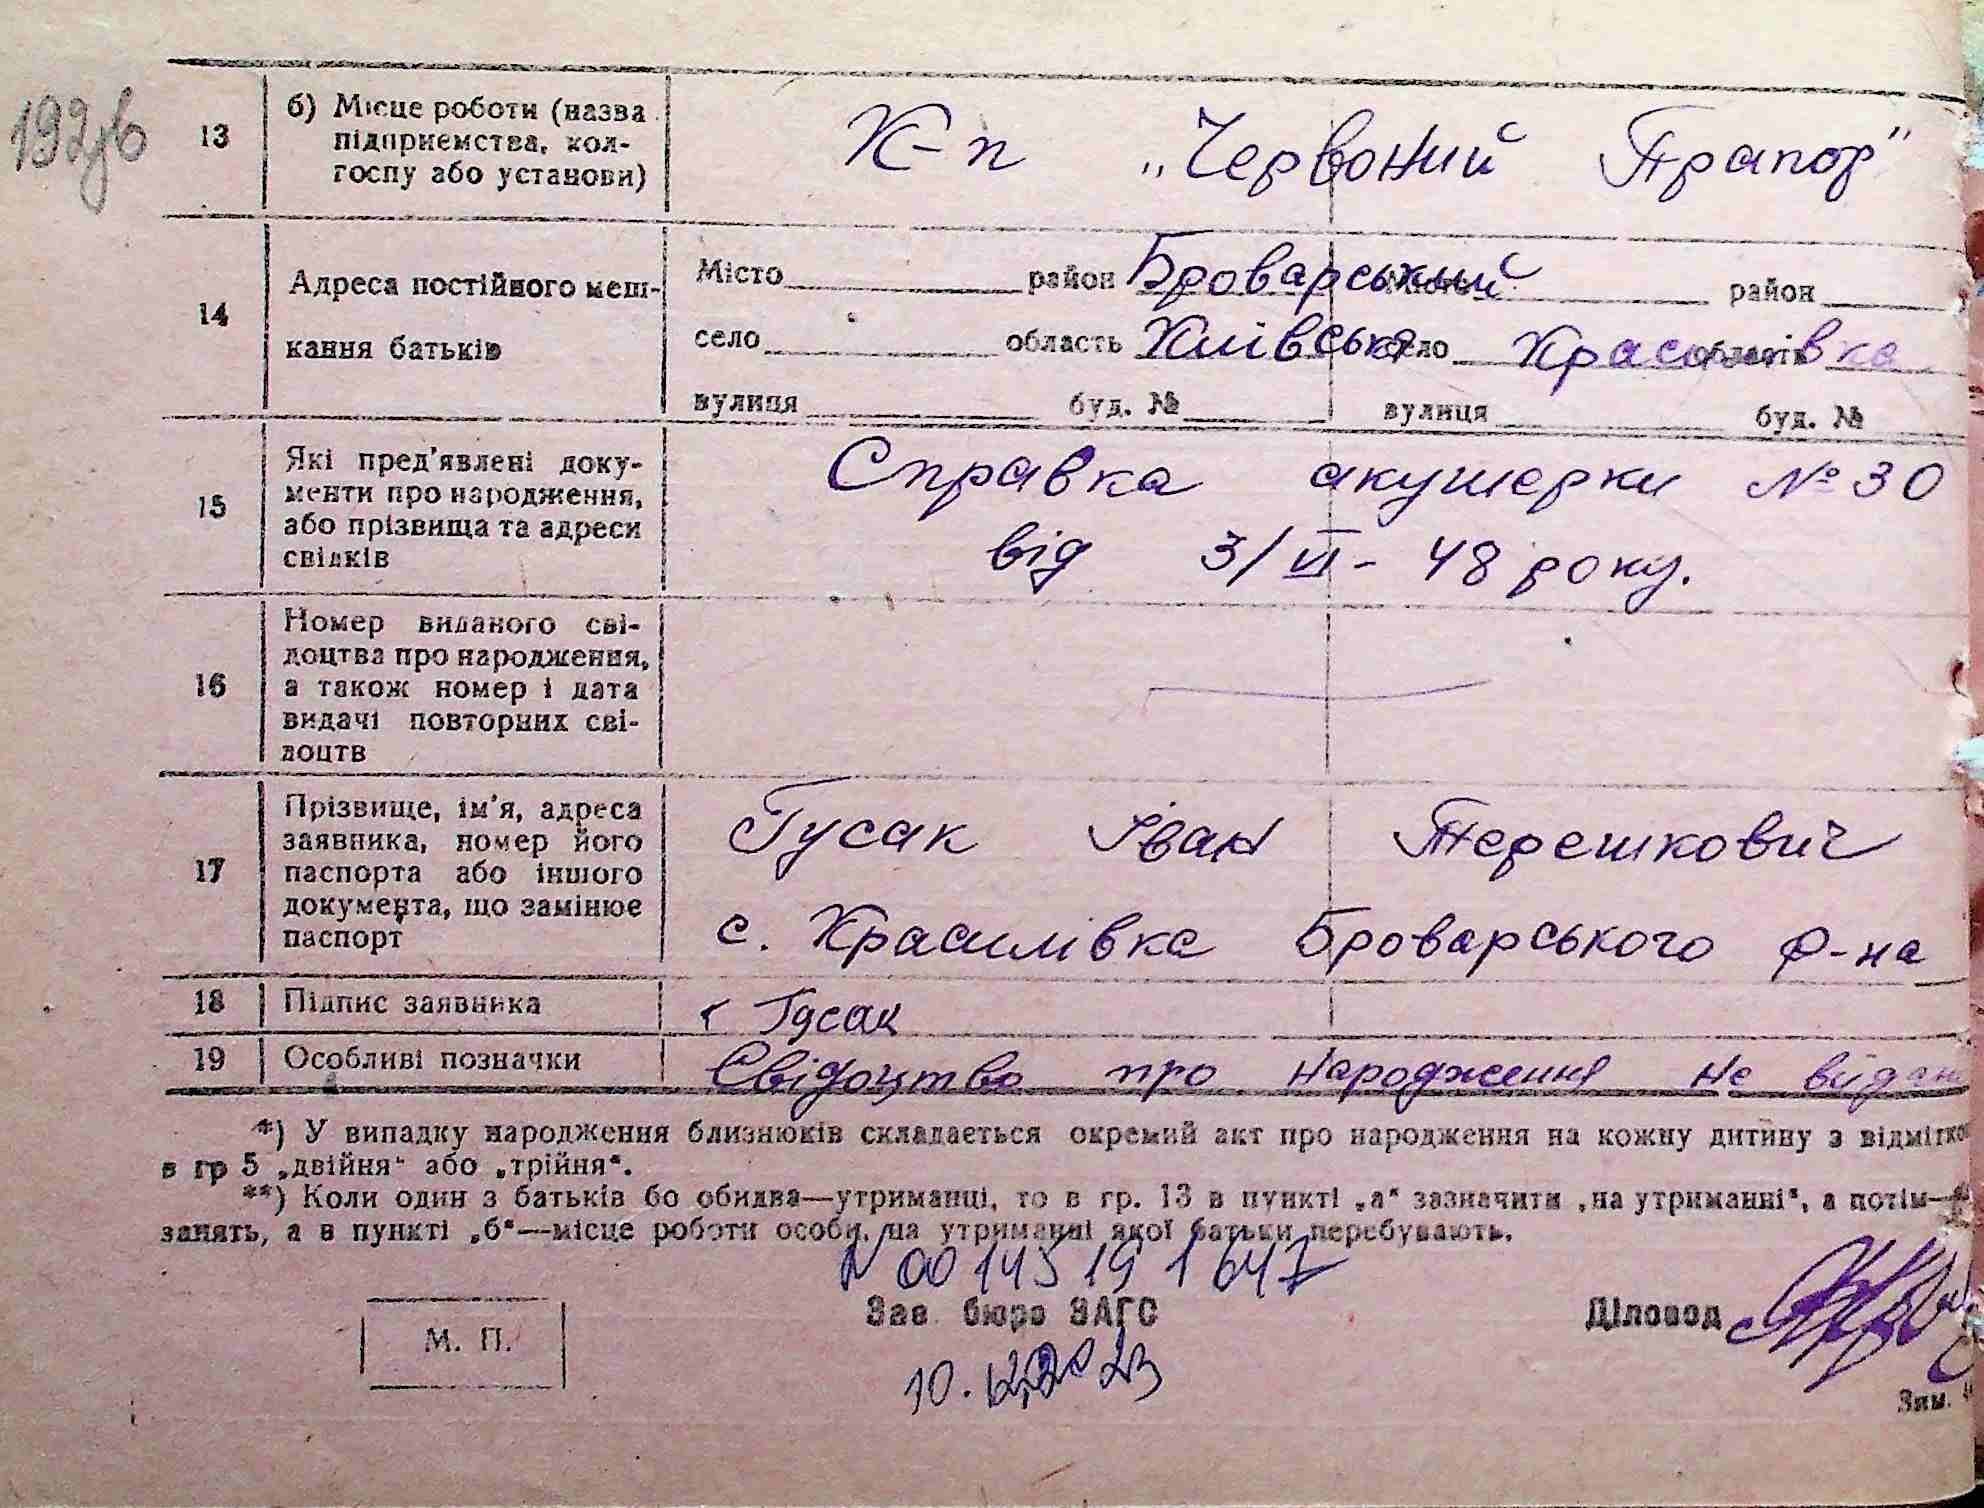 192зв
13 б) Місце роботи (назва підприємства, кол-
госпу або установи)
К-п „Червоний Трапор"
14 Адреса постійного меш-
кання батьків
Місто район Броварський Місто район
село область Київська село Красилівка область
вулиця буд. № вулиця буд. №
15 Які пред'явлені доку-
менти про народження,
або прізвища та адреси
свідків
Справка акушерки № 30
від 3/VI - 48 року.
16 Номер виданого сві-
доцтва про народження,
а також номер і дата
видачі повторних сві-
доцтв
17 Прізвище, ім'я, адреса
заявника, номер його
паспорта або іншого
документа, що замінює
паспорт
Гусак Іван Терешкович
с. Красилівка Броварського р-на
18 Підпис заявника
Гусак
19 Особливі позначки
Свідоцтво про народження не видан
*) У випадку народження близнюків складається окремий акт про народження на кожну дитину з відміткою
в гр 5 „двійня" або „трійня".
**) Коли один з батьків бо обидва—утриманці, то в гр. 13 в пункті „а" зазначити „на утриманні", а потім—
занять, а в пункті „б"—місце роботи особи, на утриманні якої батьки перебувають.
N 00145191647
Зав. бюро ЗАГС
Діловод
М. П.
Зам.